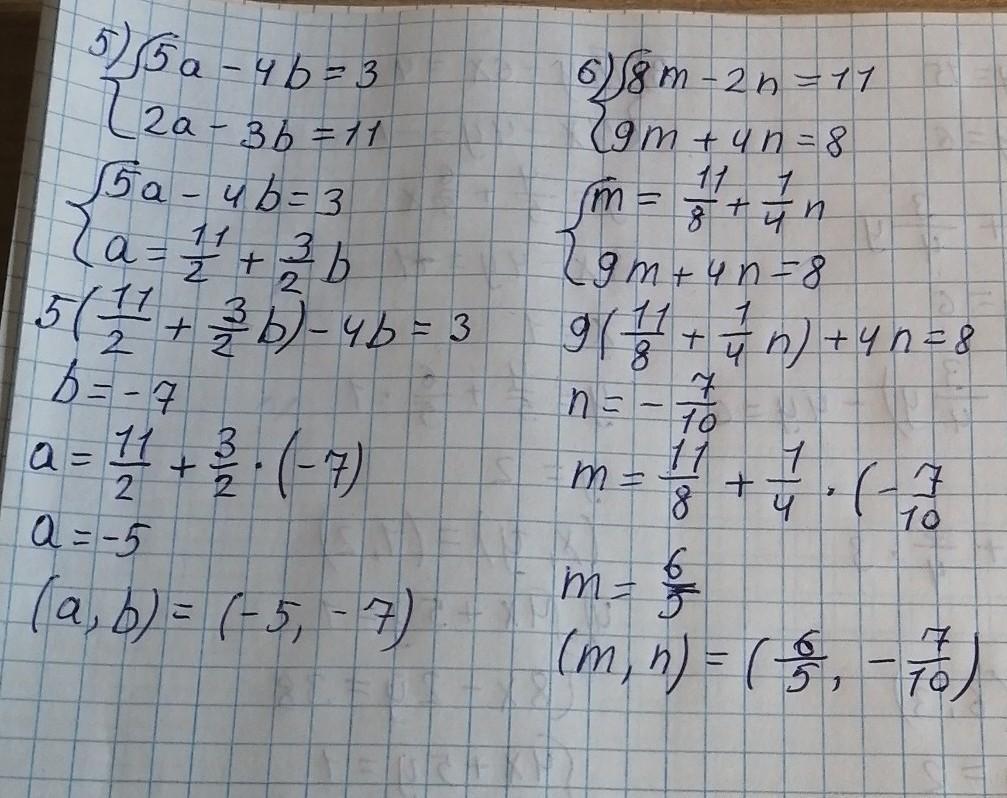 5) { 5a - 4b = 3
2a - 3b = 11
{ 5a - 4b = 3
a = 11/2 + 3/2 b
5(11/2 + 3/2 b) - 4b = 3
b = -7
a = 11/2 + 3/2 · (-7)
a = -5
(a, b) = (-5, -7)
6) { 8m - 2n = 11
9m + 4n = 8
{ m = 11/8 + 1/4 n
9m + 4n = 8
9(11/8 + 1/4 n) + 4n = 8
n = -7/10
m = 11/8 + 1/4 · (-7/10
m = 6/5
(m, n) = (6/5, -7/10)